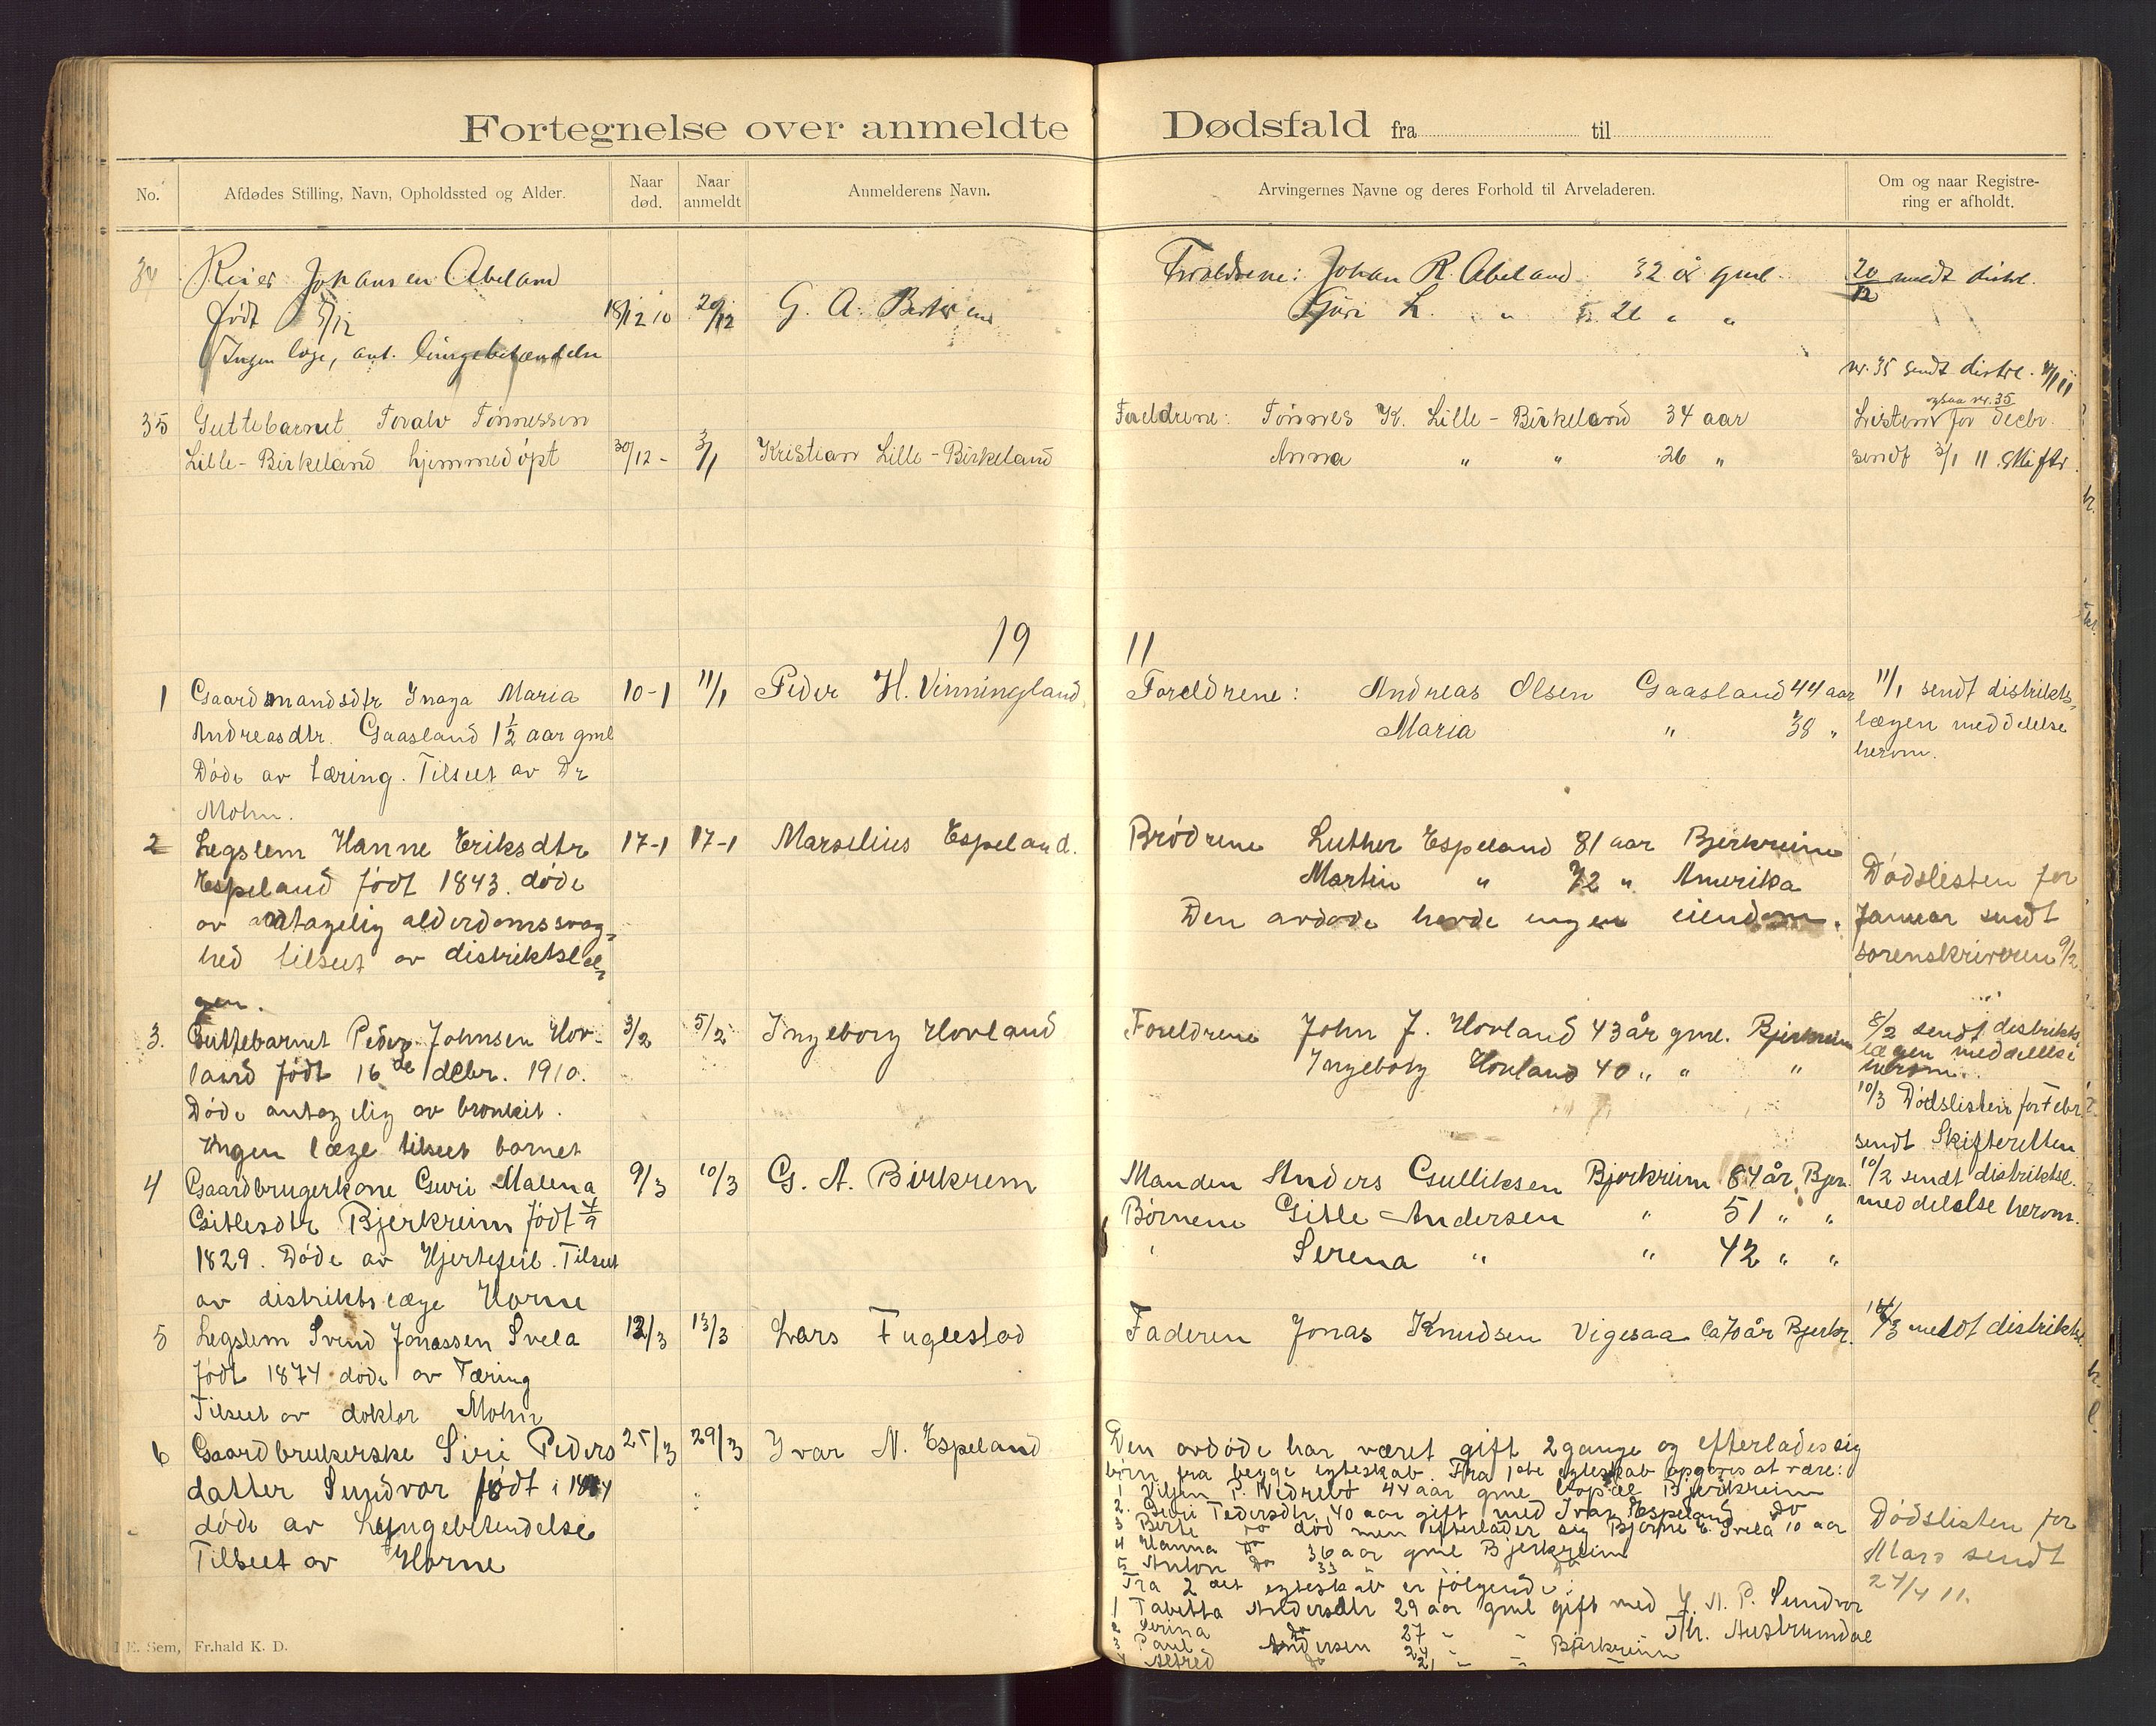 Fortegnelse over anmeldte Dødsfald fra til
No. Afdødes Stilling, Navn, Opholdssted og Alder. Naar død. Naar anmeldt Anmelderens Navn. Arvingernes Navne og deres Forhold til Arveladeren. Om og naar Registrering er afholdt.
34 Reier Johansen Abeland Foreldrene: Johan R. Abeland 32 år gml. 20/12 medt distrl.
født 5/12 18/12 10 20/12 G. A. Birkrem Guri L. " 26 " "
Ingen læge, ant. lungebetændelse
nr. 35 sendt distrl.
35 Guttebarnet Toralv Tønnessen Foreldrene: Tønnes K. Lille-Birkeland 34 aar Listerne for decbr. ogsaa nr. 35
Lille-Birkeland hjemmedøpt 30/12 - 3/1 Kristian Lille-Birkeland Anna " " 26 " sendt 3/1 11 Skiftr.
19 11
1 Gaardmandsdtr Inaga Maria 10-1 11/1 Peder H. Vinningland Foreldrene: Andreas Olsen Gaasland 44 aar 11/1 sendt distrikts-
Andreasdtr. Gaasland 1½ aar gml Maria " 38 " lægen meddelelse
Døde av tæring. Tilseet av Dr herom.
Mohn.
2 Legslem Hanne Eriksdtr 17-1 17-1 Marselius Espeland. Brødrene Luther Espeland 81 aar Bjerkreim
Espeland født 1843. døde Martin " 72 " Amerika Dødslisten for
av antagelig alderdomssvag- Den avdøde havde ingen eiendom. Januar sendt
hed tilseet av distriktslæ- sorenskriveren 9/2
gen.
3. Guttebarnet Peder Johnsen Hov- 3/2 5/2 Ingeborg Hovland Foreldrene John J. Hovland 43 år gml. Bjerkreim 8/2 sendt distrikts-
land født 16de decbr. 1910. Ingeborg Hovland 40 " " " lægen meddelelse herom.
Døde antagelig av bronkit. 10/3 Dødslisten for Febr.
Ingen læge tilseet barnet sendt Skifteretten
4 Gaardbrugerkone Guri Malena 9/3 10/3 G. A. Birkrem Manden Anders Gulliksen Bjerkreim 84 år Bjer. 10/2 sendt distriktsl.
Gitlesdtr Bjerkreim født 4/9 Børnene Gitle Andersen " 51 " " meddelelse herom.
1829. Døde av Hjertefeil. Tilseet " Serena " " 42 " "
av distriktslæge Horne
5 Legslem Svend Jonassen Svela 12/3 13/3 Lars Fuglestad Faderen Jonas Knudsen Vigesaa ca 70 år Bjerkr. 14/3 meldt distriktsl.
født 1874 døde av Tæring
Tilseet av doktor Mohn
6 Gaardbrukerske Siri Peders 25/3 29/3 Ivar N. Espeland Den avdøde har været gift 2 gange og efterlader sig
datter Sundvor født i børn fra begge egteskab. Fra 1ste egteskab opgives at være:
døde av Lungebetendelse 1 Viljen P. Vedrebø 44 aar gml Bjerkreim
Tilseet av Horne 2. Guri Pedersdtr 40 aar gift med Ivar Espeland do
3 Berte do død men efterlader sig Bjarne E. Svela 10 aar Dødslisten for
4 Hanna do 36 aar gml Bjerkreim Mars sendt
5 Anton do 33 " 24/4 11.
Fra 2det egteskab er følgende:
1 Tabitta Andersdtr 29 aar gml gift med J. A. P. Sundvor
2 Serina do 27 " " Th. Austrumdal
3 Paul Andersen 24 " " Bjerkreim
4 Alfred do 21 " " "
E. Sem, Fr.hald K. D.